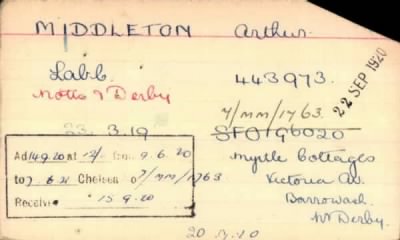 MIDDLETON Arthur.
Labb. 443973.
Notts & Derby
7/MM/1763.
22 SEP 1920
23.3.19 SFO 196020
Myrtle Cottages
Victoria Av.
Borrowash
Nr Derby.
Ad 14.9.20 at 12/- from 9.6.20
to 7.6.21 Chelsea of 7/MM/1763
Receive 15.9.20